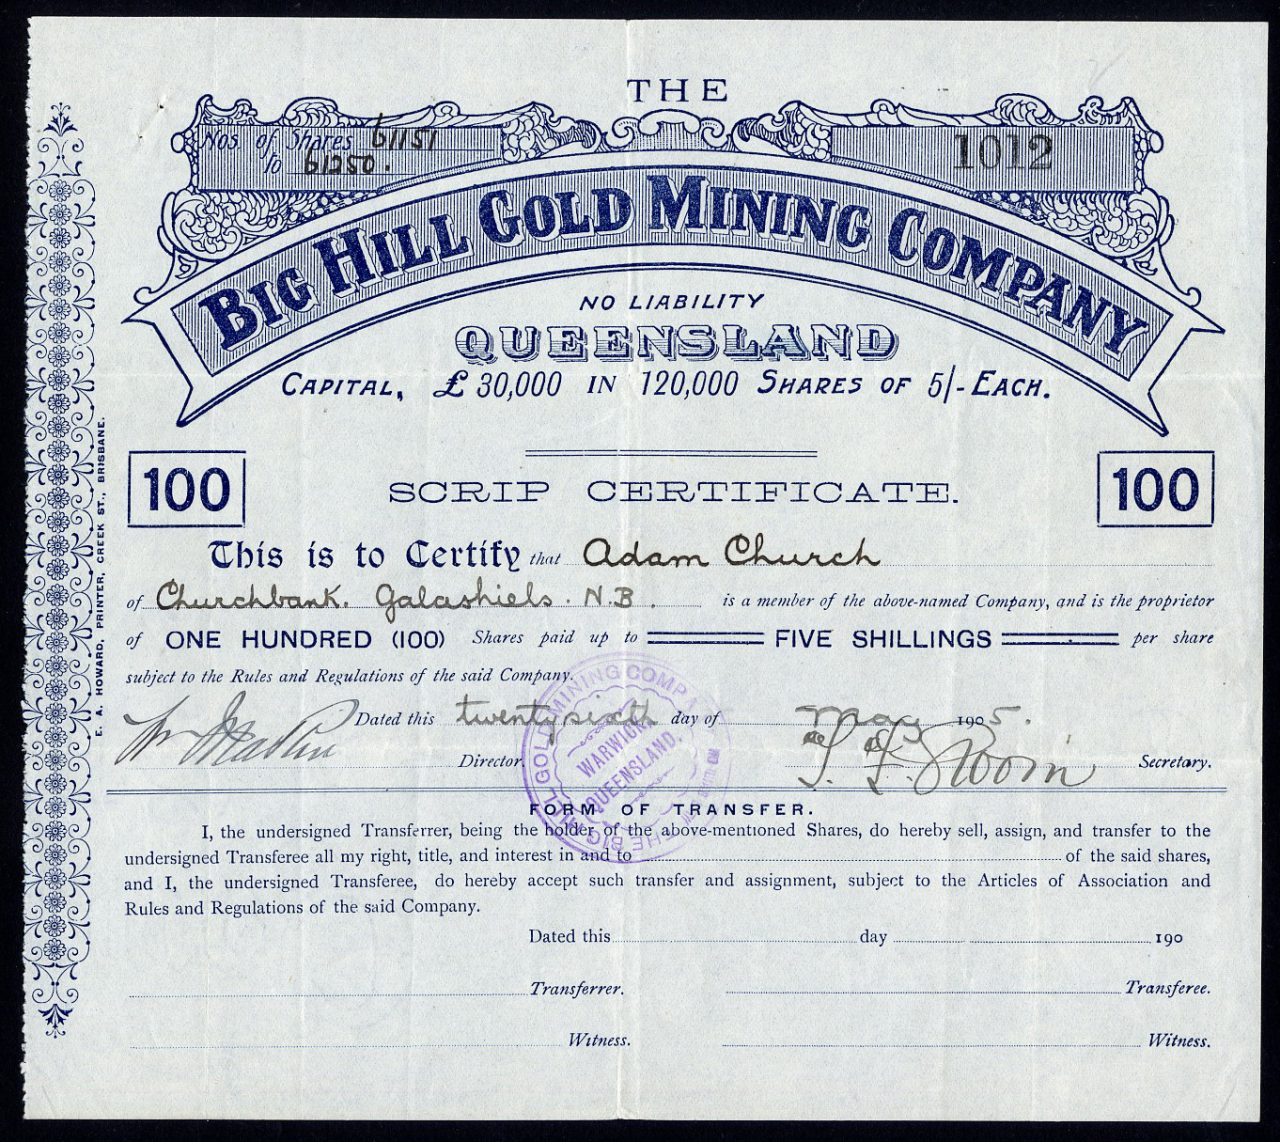 THE
Nos. of Shares 61151
to 61250.
1012
BIG HILL GOLD MINING COMPANY
NO LIABILITY
QUEENSLAND
CAPITAL, £ 30,000 IN 120,000 SHARES OF 5/- EACH.
100
SCRIP CERTIFICATE.
100
This is to Certify that Adam Church
of Churchbank. Galashiels. N.B. is a member of the above-named Company, and is the proprietor
of ONE HUNDRED (100) Shares paid up to FIVE SHILLINGS per share
subject to the Rules and Regulations of the said Company.
Dated this twenty sixth day of May 1905.
Director.
Secretary.
THE BIG HILL GOLD MINING COMPA
WARWICK,
QUEENSLAND.
FORM OF TRANSFER.
I, the undersigned Transferrer, being the holder of the above-mentioned Shares, do hereby sell, assign, and transfer to the
undersigned Transferee all my right, title, and interest in and to of the said shares,
and I, the undersigned Transferee, do hereby accept such transfer and assignment, subject to the Articles of Association and
Rules and Regulations of the said Company.
Dated this day 190
Transferrer. Transferee.
Witness. Witness.
E. A. HOWARD, PRINTER, CREEK ST., BRISBANE.